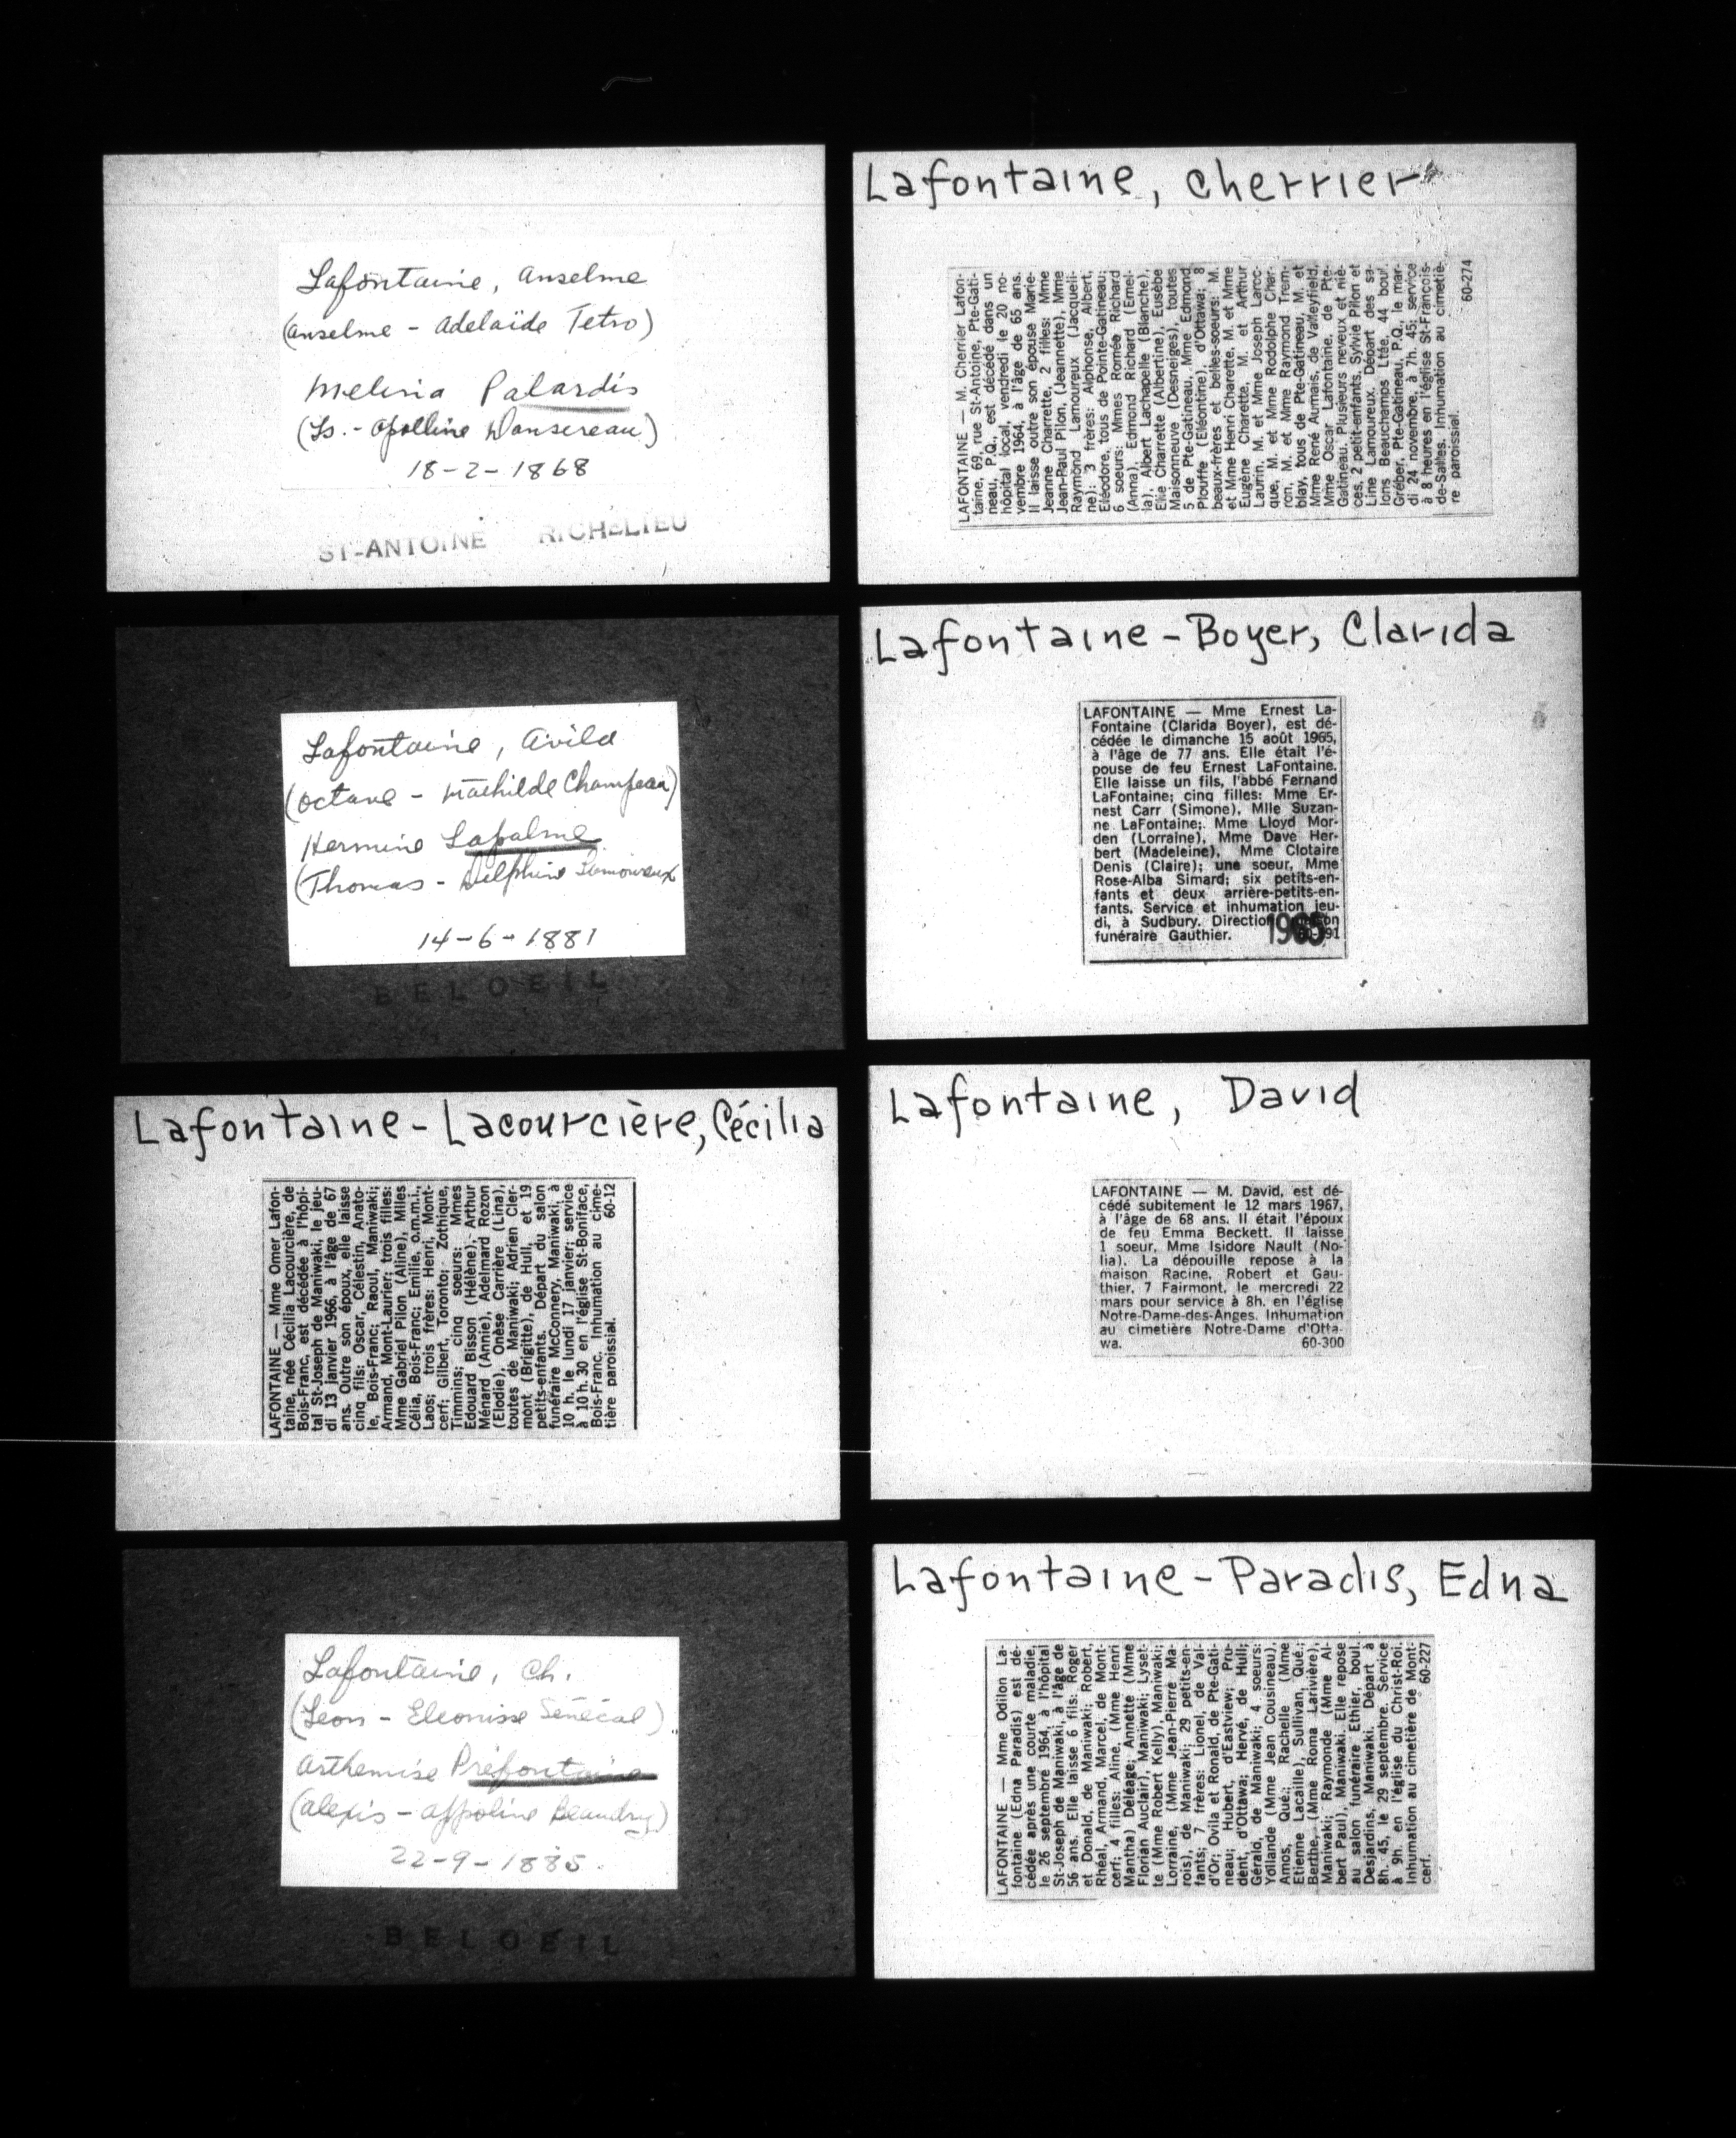 Lafontaine, Anselme
(Anselme - Adelaïde Tetro)
Melina Palardis
(Ls. - Apolline Dansereau)
18-2-1868
ST-ANTOINE RICHELIEU
Lafontaine, Avila
(Octave - Mathilde Champeau)
Hermine Lapalme
(Thomas - Delphine
14-6-1881
BELOEIL
Lafontaine-Lacourcière, Cécilia
LAFONTAINE — Mme Omer Lafon-
taine, née Cécilia Lacourcière, de
Bois-Franc, est décédée à l'hôpi-
tal St-Joseph de Maniwaki, le jeu-
di 13 janvier 1966, à l'âge de 67
ans. Outre son époux, elle laisse
cinq fils: Oscar, Célestin, Anato-
le, Bois-Franc; Raoul, Maniwaki;
Armand, Mont-Laurier; trois filles:
Mme Gabriel Pilon (Aline), Milles
Célia, Bois-Franc; Emilie, o.m.m.i.,
Laos; trois frères: Henri, Mont-
cerf; Gilbert, Toronto; Zothique,
Timmins; cinq soeurs: Mmes
Edouard Bisson (Hélène), Arthur
Ménard (Annie), Adelmard Rozon
(Elodie), Onèse Carrière (Lina),
toutes de Maniwaki; Adrien Cler-
mont (Brigitte), de Hull, et 19
petits-enfants. Départ du salon
funéraire McConnery, Maniwaki, à
10 h. le lundi 17 janvier; service
à 10 h. 30 en l'église St-Boniface,
Bois-Franc. Inhumation au cime-
tière paroissial. 60-12
Lafontaine, Ch.
(Léon - Eleonisse Sénécal)
Arthemise Préfontaine
(Alexis - Appoline Beaudry)
22-9-1885
BELOEIL
Lafontaine, Cherrier
LAFONTAINE — M. Cherrier Lafon-
taine, 69, rue St-Antoine, Pte-Gati-
neau, P.Q., est décédé dans un
hôpital local, vendredi le 20 no-
vembre 1964, à l'âge de 65 ans.
Il laisse outre son épouse Marie-
Jeanne Charrette, 2 filles: Mme
Jean-Paul Pilon, (Jeannette), Mme
Raymond Lamoureux (Jacqueli-
ne); 3 frères: Alphonse, Albert,
Eléodore, tous de Pointe-Gatineau;
6 soeurs: Mmes Romée Richard
(Anna), Edmond Richard (Emel-
la), Albert Lachapelle (Blanche),
Elie Charrette (Albertine), Eusèbe
Maisonneuve (Desneiges), toutes
5 de Pte-Gatineau, Mme Edmond
Plouffe (Eléontine), d'Ottawa; 8
beaux-frères et belles-soeurs: M.
et Mme Henri Charette, M. et Mme
Eugène Charette, M. et Arthur
Laurin, M. et Mme Joseph Laroc-
que, M. et Mme Rodolphe Char-
ron, M. et Mme Raymond Trem-
blay, tous de Pte-Gatineau, M. et
Mme René Aumais, de Valleyfield,
Mme Oscar Lafontaine, de Pte-
Gatineau. Plusieurs neveux et niè-
ces, 2 petit-enfants, Sylvie Pilon et
Line Lamoureux. Départ des sa-
lons Beauchamps Ltée, 44 boul.
Gréber, Pte-Gatineau, P.Q., le mar-
di 24 novembre, à 7h. 45; service
à 8 heures en l'église St-François-
de-Salles. Inhumation au cimetiè-
re paroissial. 60-274
Lafontaine-Boyer, Clarida
LAFONTAINE — Mme Ernest La-
Fontaine (Clarida Boyer), est dé-
cédée le dimanche 15 août 1965,
à l'âge de 77 ans. Elle était l'é-
pouse de feu Ernest LaFontaine.
Elle laisse un fils, l'abbé Fernand
LaFontaine; cinq filles: Mme Er-
nest Carr (Simone), Mlle Suzan-
ne LaFontaine; Mme Lloyd Mor-
den (Lorraine), Mme Dave Her-
bert (Madeleine), Mme Clotaire
Denis (Claire); une soeur, Mme
Rose-Alba Simard; six petits-en-
fants et deux arrière-petits-en-
fants. Service et inhumation jeu-
di, à Sudbury. Direction
funéraire Gauthier. 1965
Lafontaine, David
LAFONTAINE — M. David, est dé-
cédé subitement le 12 mars 1967,
à l'âge de 68 ans. Il était l'époux
de feu Emma Beckett. Il laisse
1 soeur, Mme Isidore Nault (No-
lia). La dépouille repose à la
maison Racine, Robert et Gau-
thier, 7 Fairmont, le mercredi 22
mars pour service à 8h. en l'église
Notre-Dame-des-Anges. Inhumation
au cimetière Notre-Dame d'Otta-
wa. 60-300
Lafontaine-Paradis, Edna
LAFONTAINE — Mme Odilon La-
fontaine (Edna Paradis) est dé-
cédée après une courte maladie,
le 26 septembre 1964, à l'hôpital
St-Joseph de Maniwaki, à l'âge de
56 ans. Elle laisse 6 fils: Roger
et Donald, de Maniwaki; Robert,
Rhéal, Armand, Marcel, de Mont-
cerf; 4 filles: Aline, (Mme Henri
Mantha) Déléage; Annette (Mme
Florian Auclair), Maniwaki; Lyset-
te (Mme Robert Kelly), Maniwaki;
Lorraine, (Mme Jean-Pierre Ma-
rois), de Maniwaki; 29 petits-en-
fants; 7 frères: Lionel, de Val-
d'Or; Ovila et Ronald, de Pte-Gati-
neau; Hubert, d'Eastview; Pru-
dent, d'Ottawa; Hervé, de Hull;
Gérald, de Maniwaki; 4 soeurs:
Yollande (Mme Jean Cousineau),
Amos, Qué.; Rachelle (Mme
Etienne Lacaille), Sullivan, Qué.;
Berthe, (Mme Roma Larivière),
Maniwaki; Raymonde (Mme Al-
bert Paul), Maniwaki. Elle repose
au salon funéraire Ethier, boul.
Desjardins, Maniwaki. Départ à
8h. 45, le 29 septembre. Service
à 9h. en l'église du Christ-Roi.
Inhumation au cimetière de Mont-
cerf. 60-227